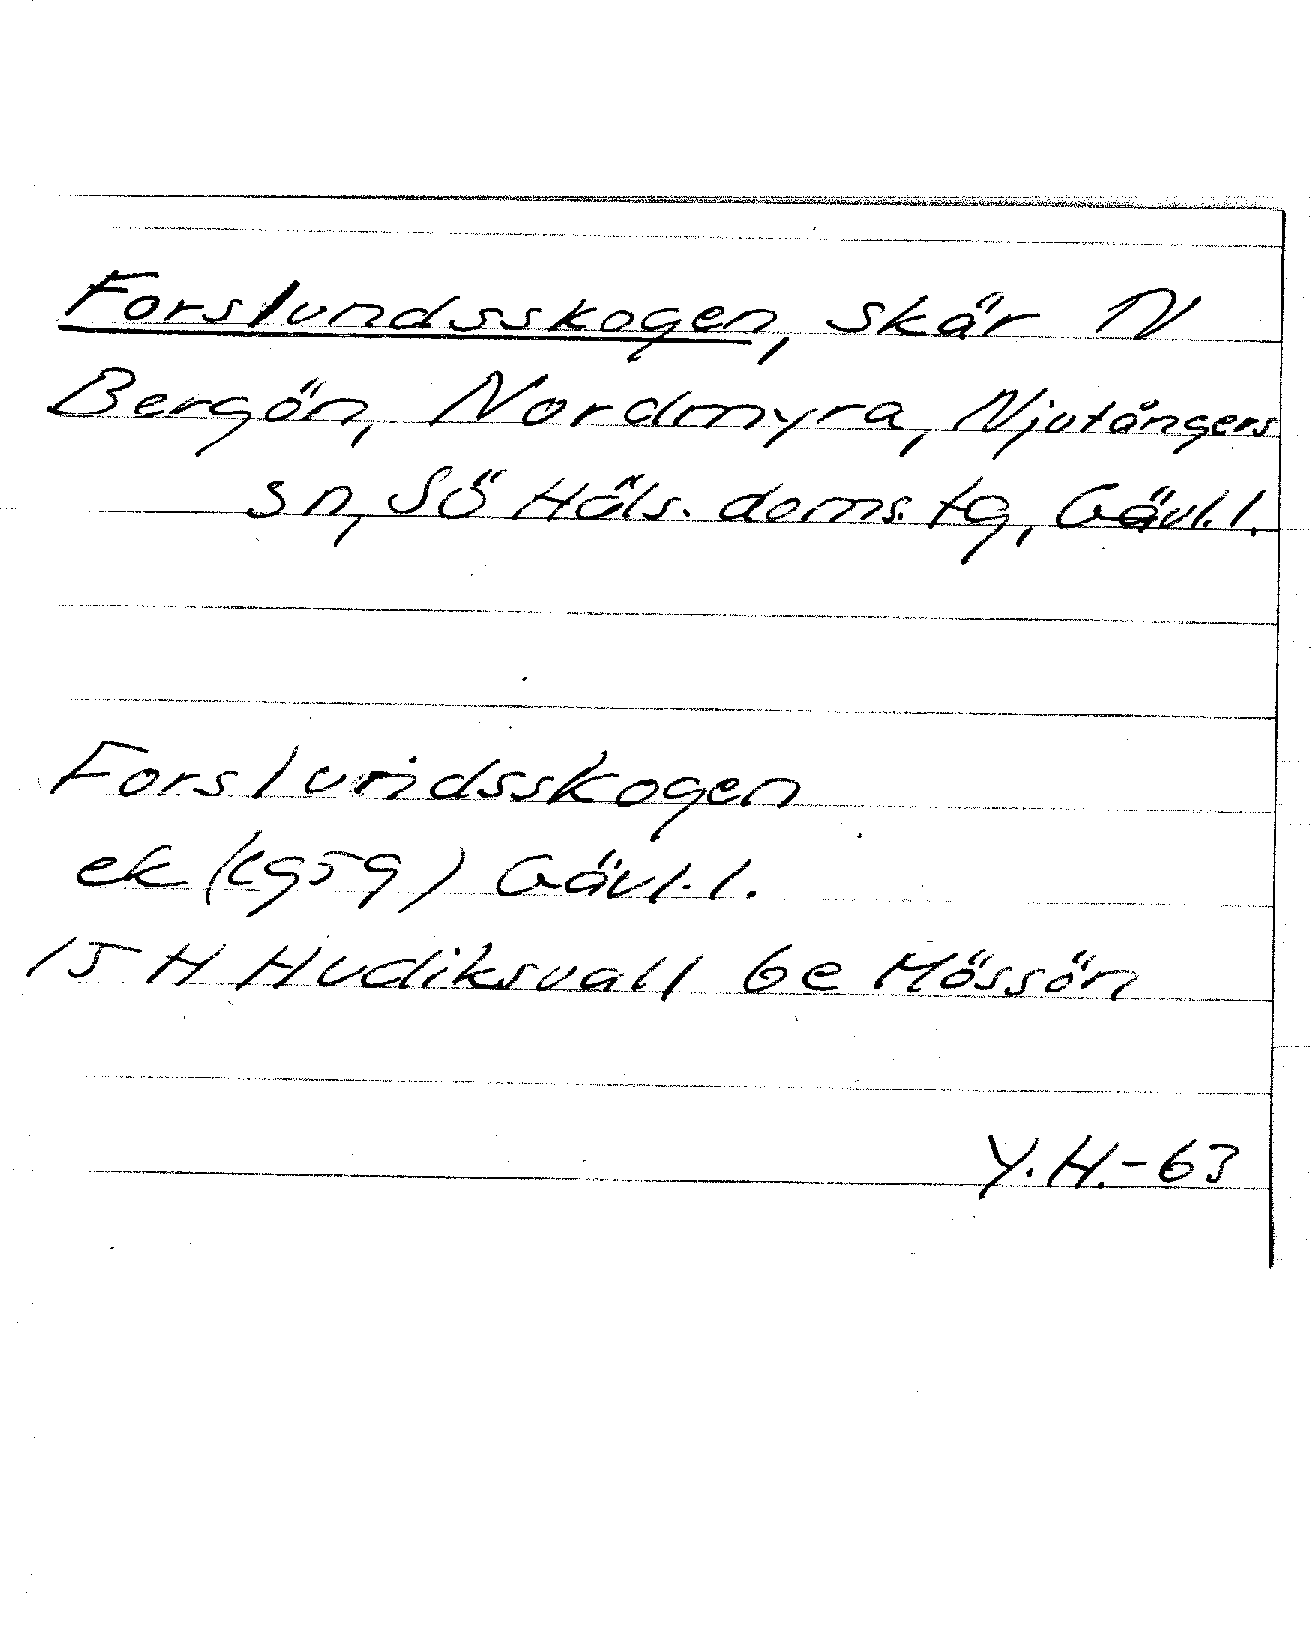 Forslundsskogen, skär N
Bergön, Nordmyra, Njutångers
sn, SÖ Häls. doms. tg, Gävl. l.
Forslundsskogen
ek (1959) Gävl. l.
15 H Hudiksvall 6e Mössön
Y. H. - 63